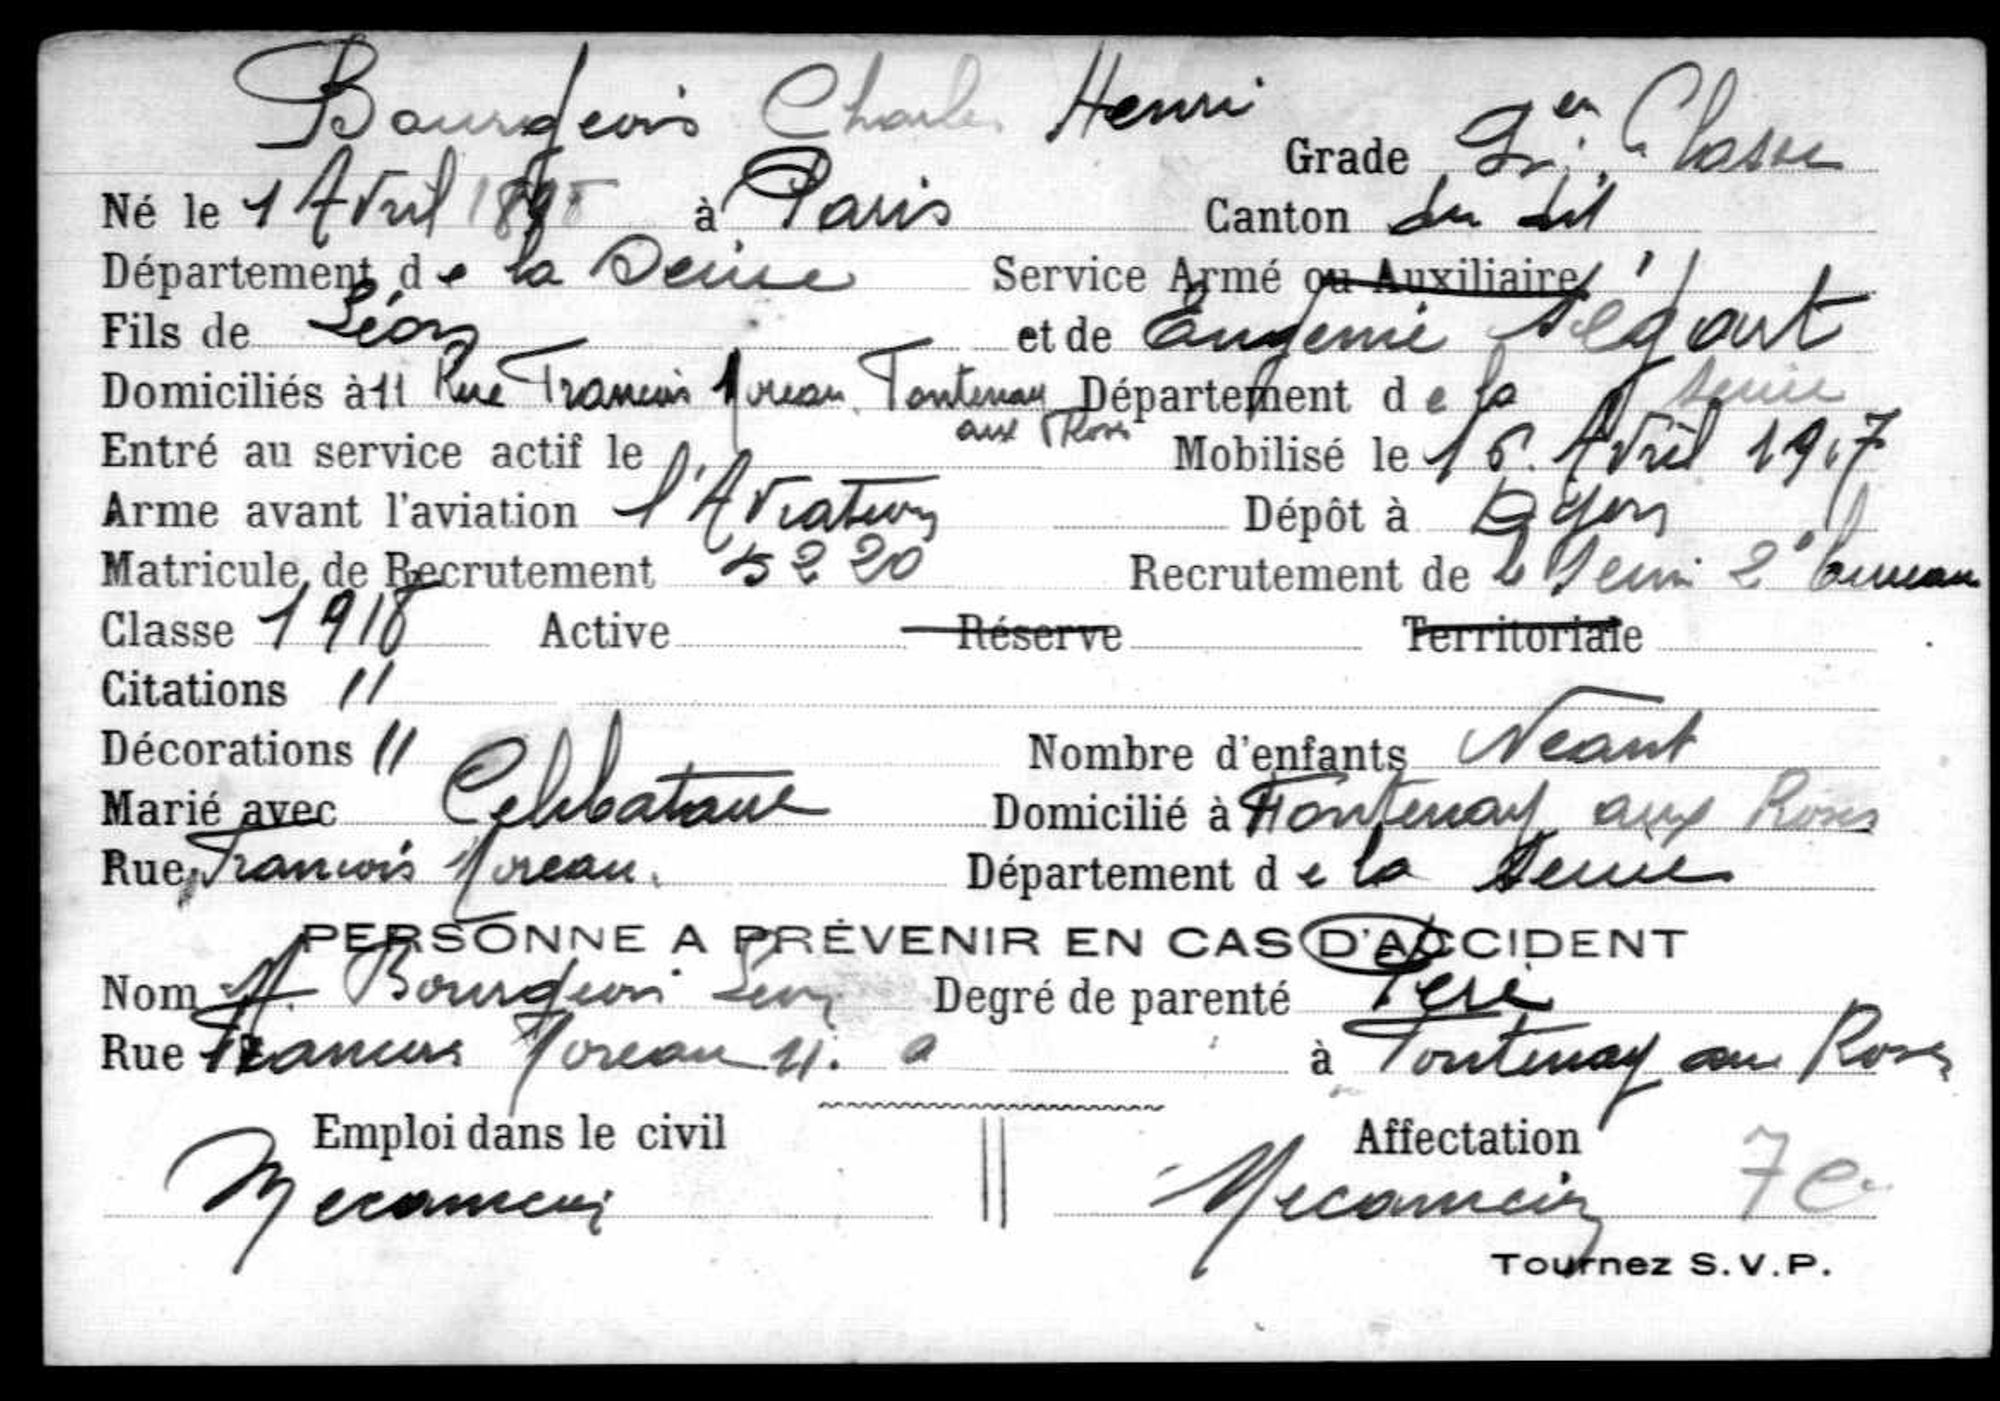 Bourgeois Charles Henri
Grade 2en Classe
Né le 1 Avril 1898 à Paris Canton du dit
Département de la Seine Service Armé ou Auxiliaire
Fils de Léon et de Eugenie
Domiciliés à 11 Rue Francois Moreau Fontenay aux Roses Département de la Seine
Entré au service actif le Mobilisé le 16 Avril 1917
Arme avant l'aviation l'Aviation Dépôt à Dijon
Matricule de Recrutement 5220 Recrutement de la Seine 2e bureau
Classe 1918 Active Réserve Territoriale
Citations "
Décorations " Nombre d'enfants Néant
Marié avec Celibataire Domicilié à Fontenay aux Roses
Rue Francois Moreau. Département de la Seine
PERSONNE A PRÉVENIR EN CAS D'ACCIDENT
Nom M. Bourgeois Leon Degré de parenté Père
Rue Francois Moreau 11. à Fontenay aux Roses
Emploi dans le civil Affectation
Mecanicien Mecanicien
Tournez S.V.P.